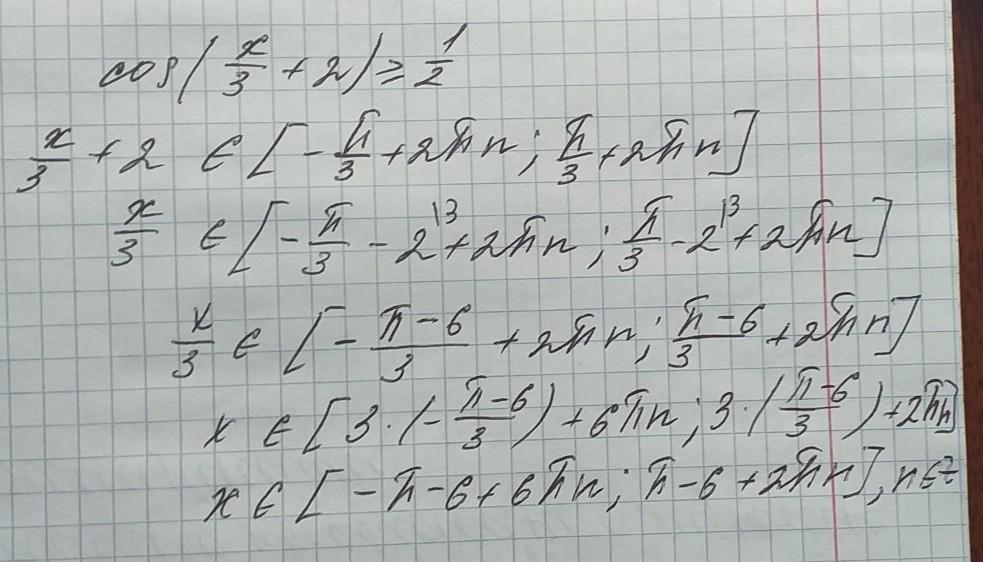 cos(x/3 + 2) ≥ 1/2
x/3 + 2 ∈ [-π/3 + 2πn; π/3 + 2πn]
x/3 ∈ [-π/3 - 2\3 + 2πn; π/3 - 2\3 + 2πn]
x/3 ∈ [-(π-6)/3 + 2πn; (π-6)/3 + 2πn]
x ∈ [3·(-(π-6)/3) + 6πn; 3·((π-6)/3) + 2πn]
x ∈ [-π-6+6πn; π-6+2πn], n∈Z